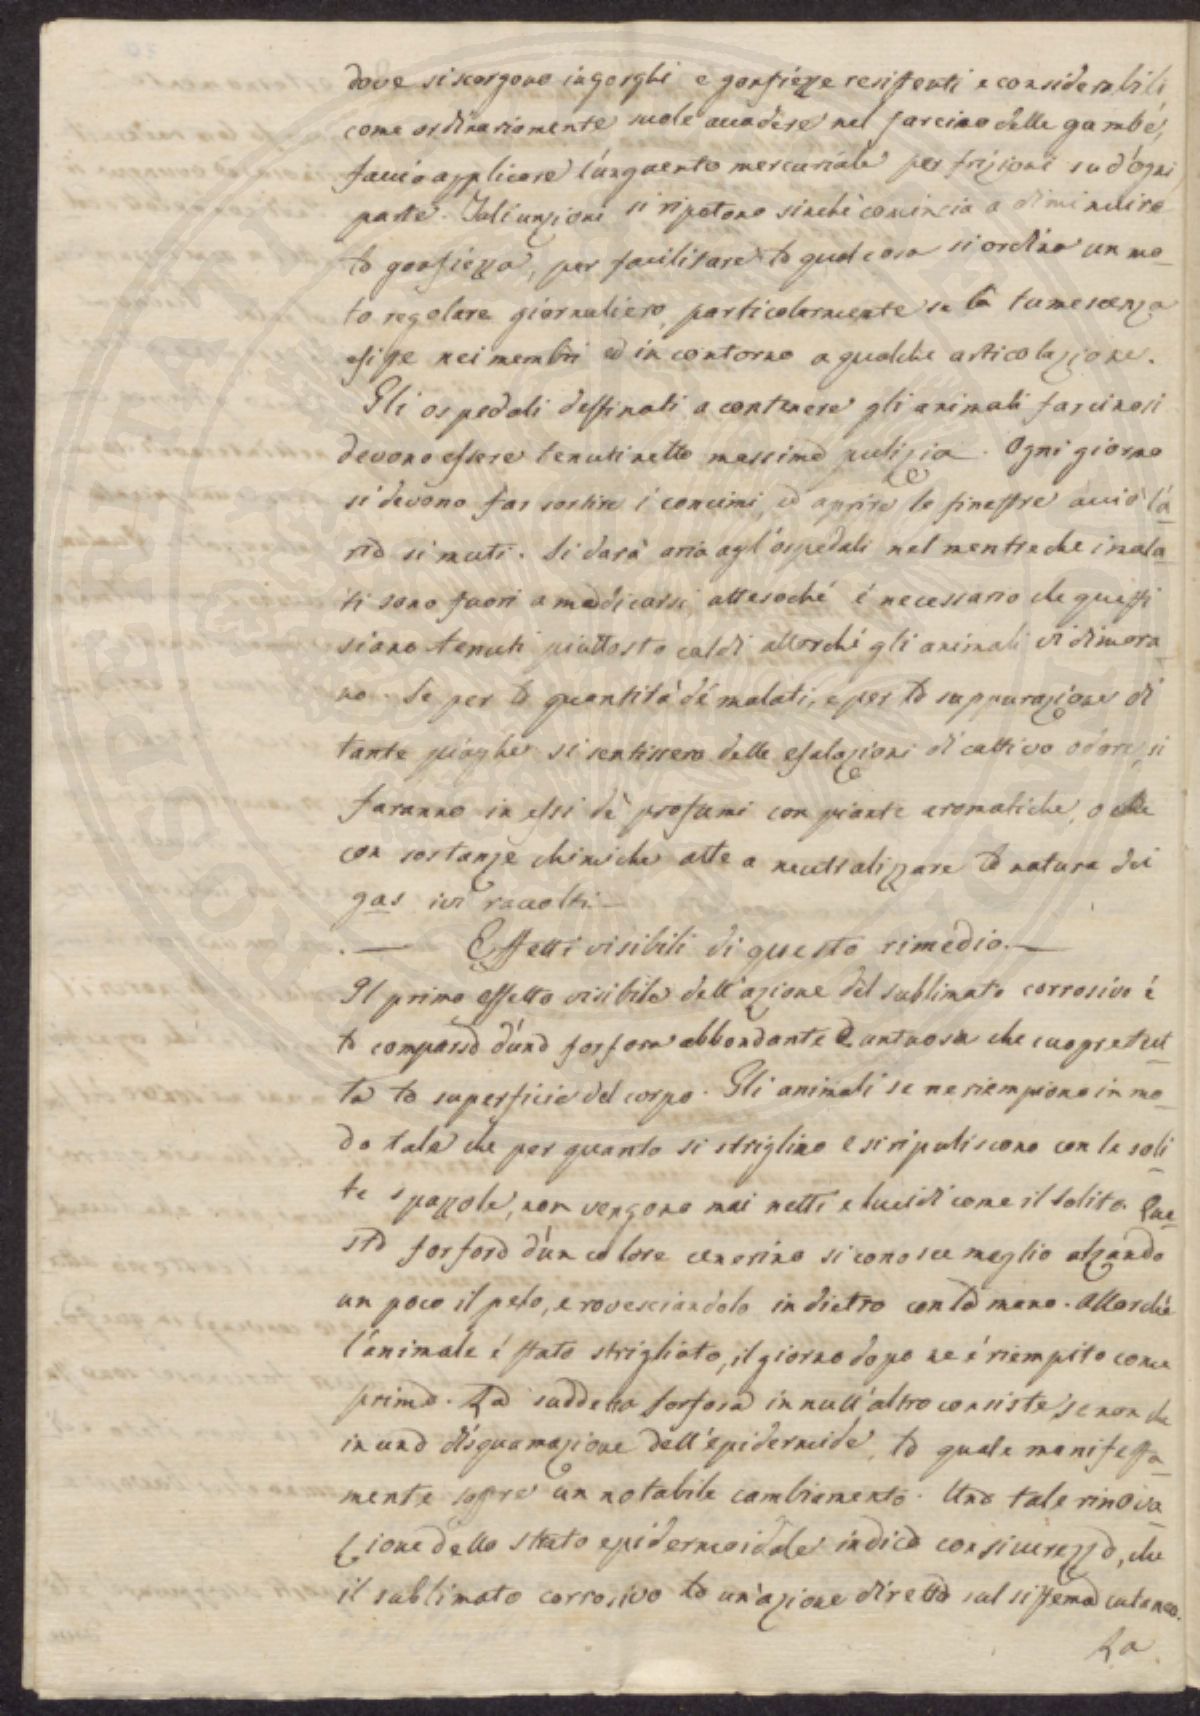 dove si scorgono ingorghi e gonfiezze resistenti e considerabili,
come ordinariamente suole accadere nel farcino delle gambe,
faccio applicare l'unguento mercuriale per frizioni su d'ogni
parte. Tali unzioni si ripetono sinchè comincia a diminuire
la gonfiezza, per facilitare la qual cosa si ordina un mo_
to regolare giornaliero, particolarmente se la tumescenza
esiste nei membri ed in contorno a qualche articolazione.
Gli ospedali destinati a contenere gli animali farcinosi
devono essere tenuti nella massima pulizia. Ogni giorno
si devono far sortire i concimi, ed aprire le finestre acciò l'a_
ria si muti. Si darà aria agl'ospedali nel mentre che i mala_
ti sono fuori a medicarsi, attesoché é necessario che questi
siano tenuti piuttosto caldi allorché gli animali vi dimora_
no. Se per la quantità dé malati, e per la suppurazione di
tante piaghe si sentissero delle esalazioni di cattivo odore, si
faranno in essi dè profumi con piante aromatiche, o
con sostanze chimiche atte a neutralizzare la natura dei
gas ivi raccolti. —
. — Effetti visibili di questo rimedio. —
Il primo effetto visibile dell'azione del sublimato corrosivo é
la comparsa d'una forfora abbondante e untuosa che cuopre tut_
ta la superficie del corpo. Gli animali se ne riempiono in mo_
do tale che per quanto si striglino e si ripuliscono con le soli_
te spazzole, non vengono mai netti e lucidi come il solito. Que_
sta forfora d'un colore cenerino si conosce meglio alzando
un poco il pelo, e rovesciandolo in dietro con la mano. Allorchè
l'animale é stato strigliato, il giorno dopo ne é riempito come
prima. La suddetta forfora in null'altro consiste se non che
in una disquamazione dell'epidermide, la quale manifesta_
mente soffre un notabile cambiamento. Una tale rinova_
zione dello strato epidermoidale indica con sicurezza, che
il sublimato corrosivo ha un'azione diretta sul sistema cutaneo.
La